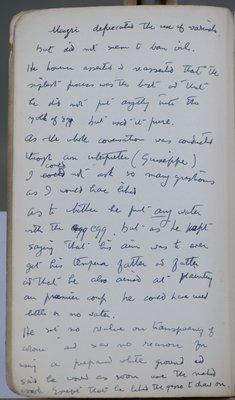 deprecated the use of varnish
but did not seem to ban oil.
He however asserted & reasserted that the
simplest process was the best & that
he did not put anything into the
yolk of egg but used it pure.
As the whole conversation was conducted
through an interpreter (Giuseppe)
I could not ask so many questions
as I would have liked
As to whether he put any water
with the egg but as he kept
saying that his aim was to ever
get his tempera fatter & fatter
& that he also aimed at painting
au premier coup he could have used
little or no water.
He set no value on transparency of
colour & saw no reason for
using a prepared white ground &
said he would as soon use the naked
except that he liked the gesso to draw on.